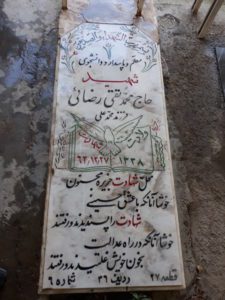 معلم و پاسدار و دانشجوی
شهید
حاج محمد تقی رضائی
فرزند محمد علی
ولادت شهادت
۱۳۳۸ ۶۳,۱۲,۲۷
محل شهادت جزیره مجنون
خوشا آنانکه با عشق حسینی
شهادت را پسندیدند و رفتند
خوشا آنانکه در راه عدالت
بخون خویش غلتیدند و رفتند
قطعه ۲۷ ردیف ۳۶ شماره ۶